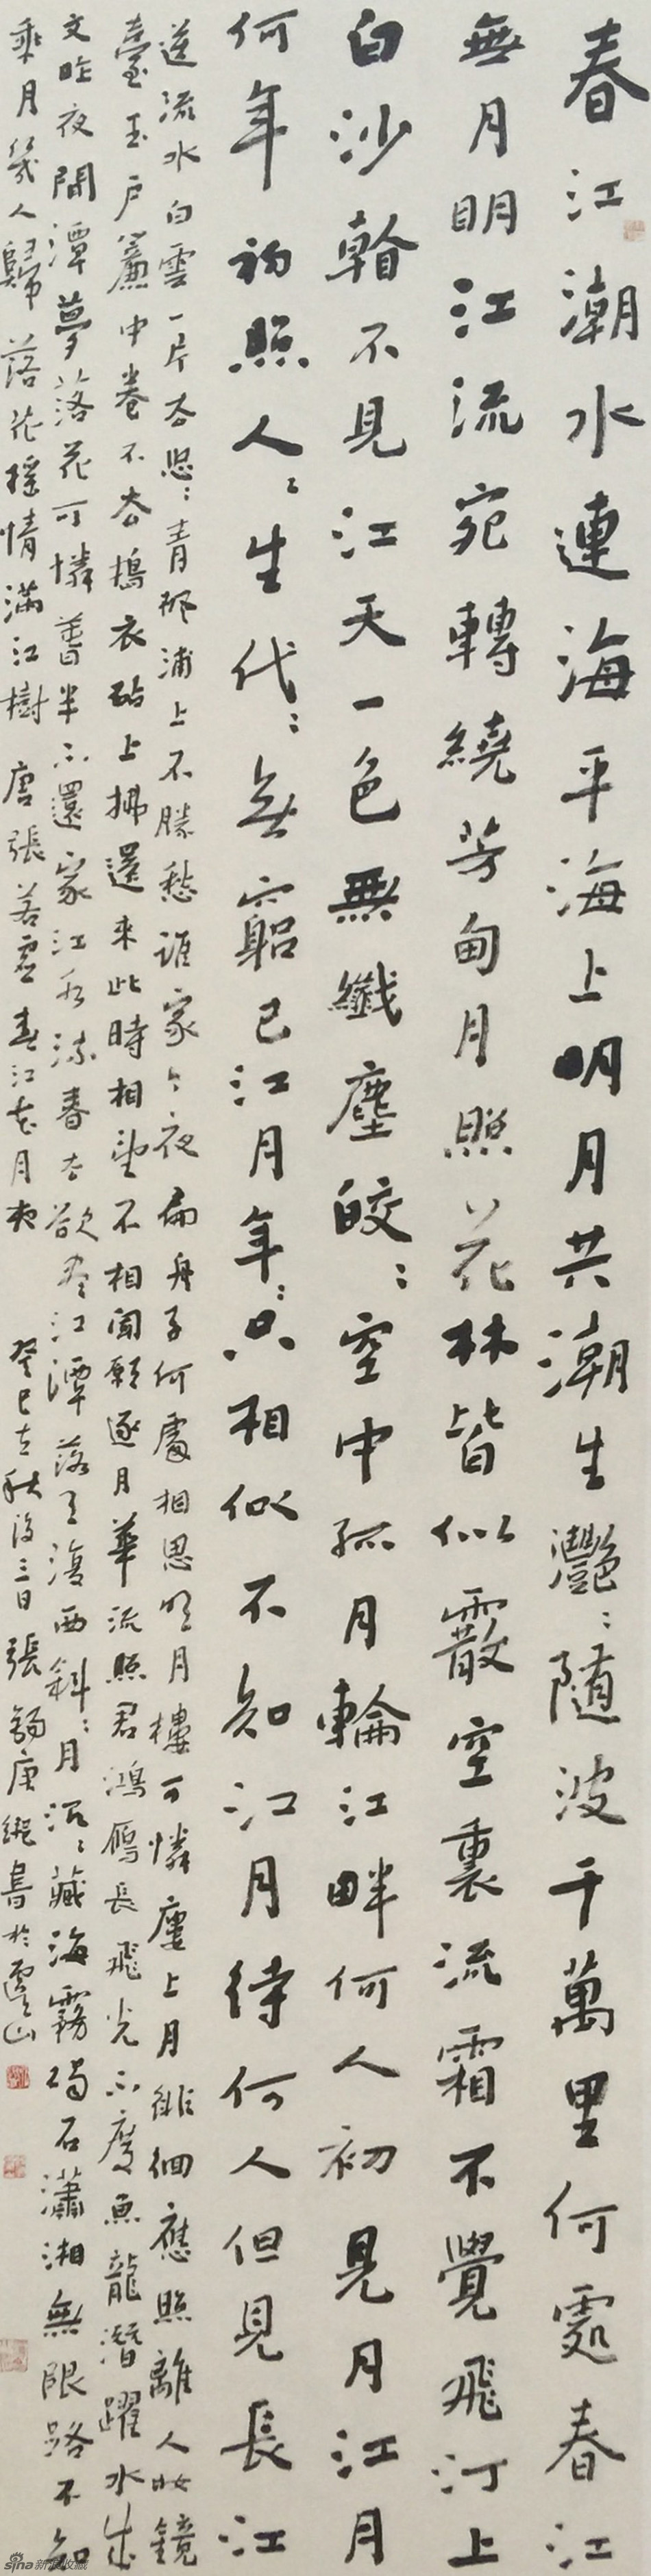 春江潮水連海平海上明月共潮生灩〻随波千萬里何處春江
無月明江流宛轉繞芳甸月照花林皆似霰空裏流霜不覺飛汀上
白沙看不見江天一色無纖塵皎〻空中孤月輪江畔何人初見月江月
何年初照人〻生代〻無窮已江月年〻只相似不知江月待何人但見長江
送流水白雲一片去悠〻青楓浦上不勝愁誰家今夜扁舟子何處相思明月樓可憐樓上月徘徊應照離人妝鏡
臺玉户簾中卷不去搗衣砧上拂還來此時相望不相聞願逐月華流照君鴻雁長飛光不度魚龍潛躍水成
文昨夜閒潭夢落花可憐春半不還家江水流春去欲盡江潭落月復西斜〻月沉〻藏海霧碣石瀟湘無限路不知
乘月幾人歸落花摇情滿江樹 唐張若虚春江花月夜 癸巳立秋後三日張錫庚縱書於虞山
sina新浪收藏